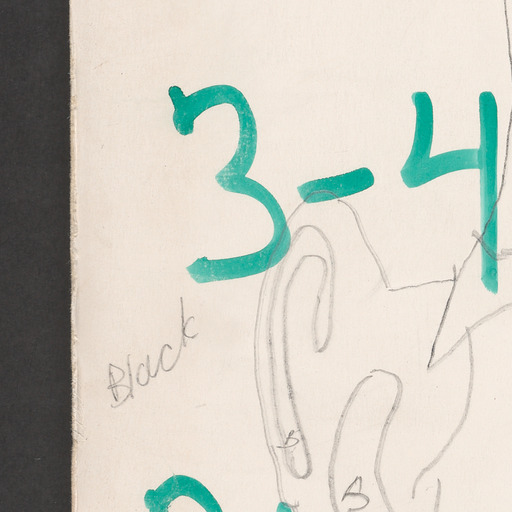 3-4
Black
B
B